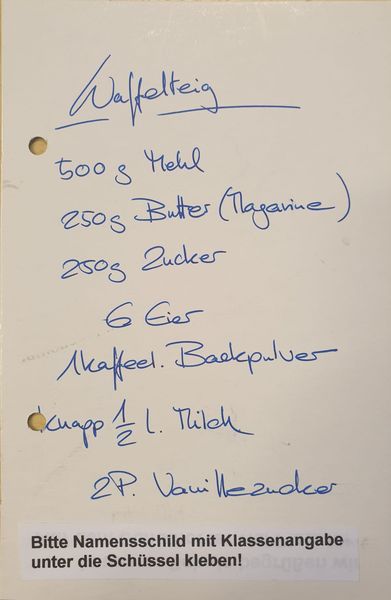 Waffelteig
500 g Mehl
250g Butter (Magarine)
250g Zucker
6 Eier
1 Kaffeel. Backpulver
Knapp 1/2 l. Milch
2P. Vanillezucker
Bitte Namensschild mit Klassenangabe
unter die Schüssel kleben!